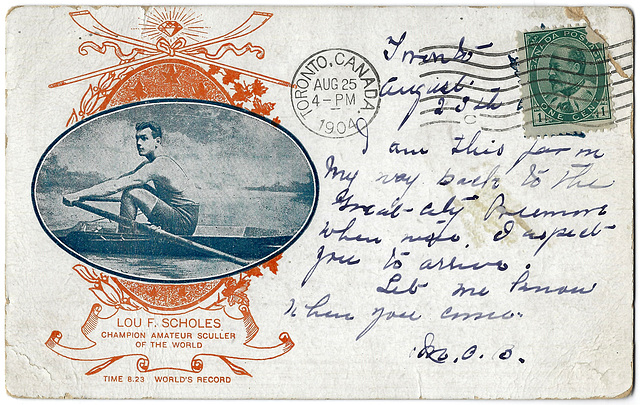 LOU F. SCHOLES
CHAMPION AMATEUR SCULLER
OF THE WORLD
TIME 8.23 WORLD'S RECORD
TORONTO, CANADA
AUG 25
4-PM
1904
CANADA POSTAGE
ONE CENT
Toronto
August
25th
I am this far on
My way back to the
Great city
when
I expect
you to arrive.
Let me know
when you come.